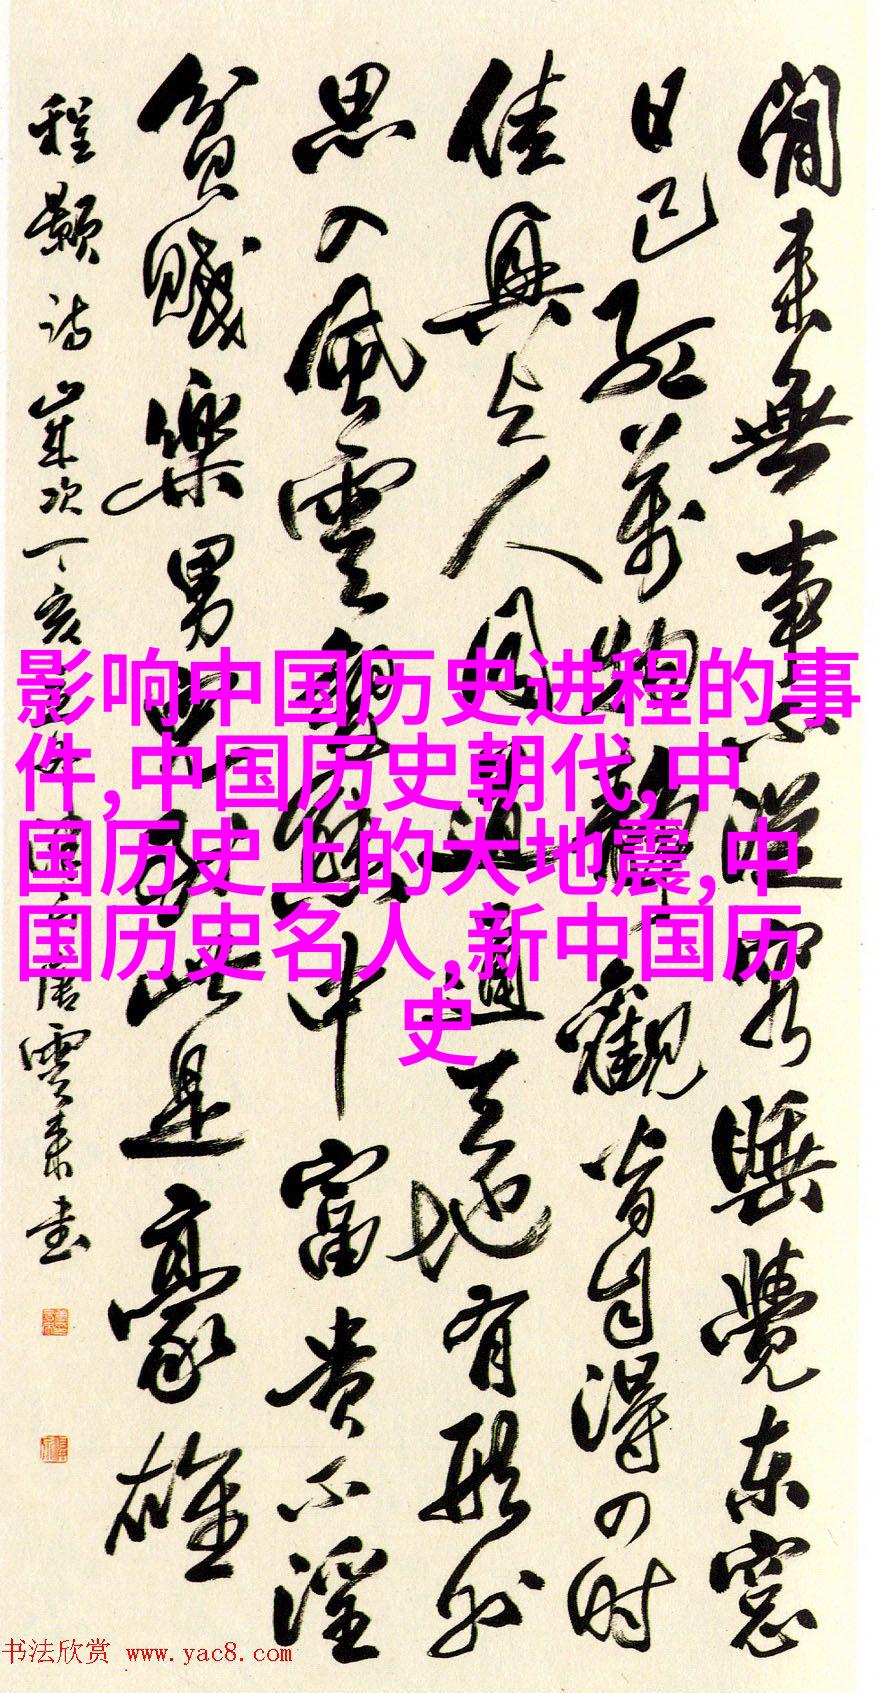 閒来無事不從容睡覺东窓
日已紅萬物静觀皆自得四时
佳興与人同道通天地有形外
思入風雲變態中富贵不淫
貧賤樂男児到此是豪雄
程颢诗歲次丁亥 唐雲来书
影响中国历史进程的事
件,中国历史朝代,中
国历史上的大地震,中
国历史名人,新中国历
史
书法欣赏 www.yac8.com